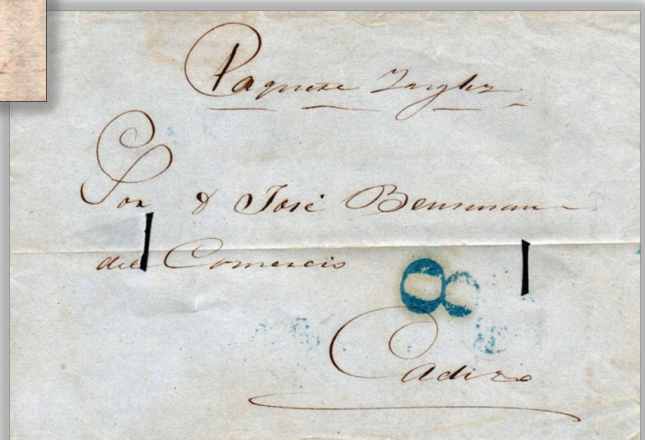 Paquete Ingles
Sor D José Bensusan
del Comercio
8
Cadiz